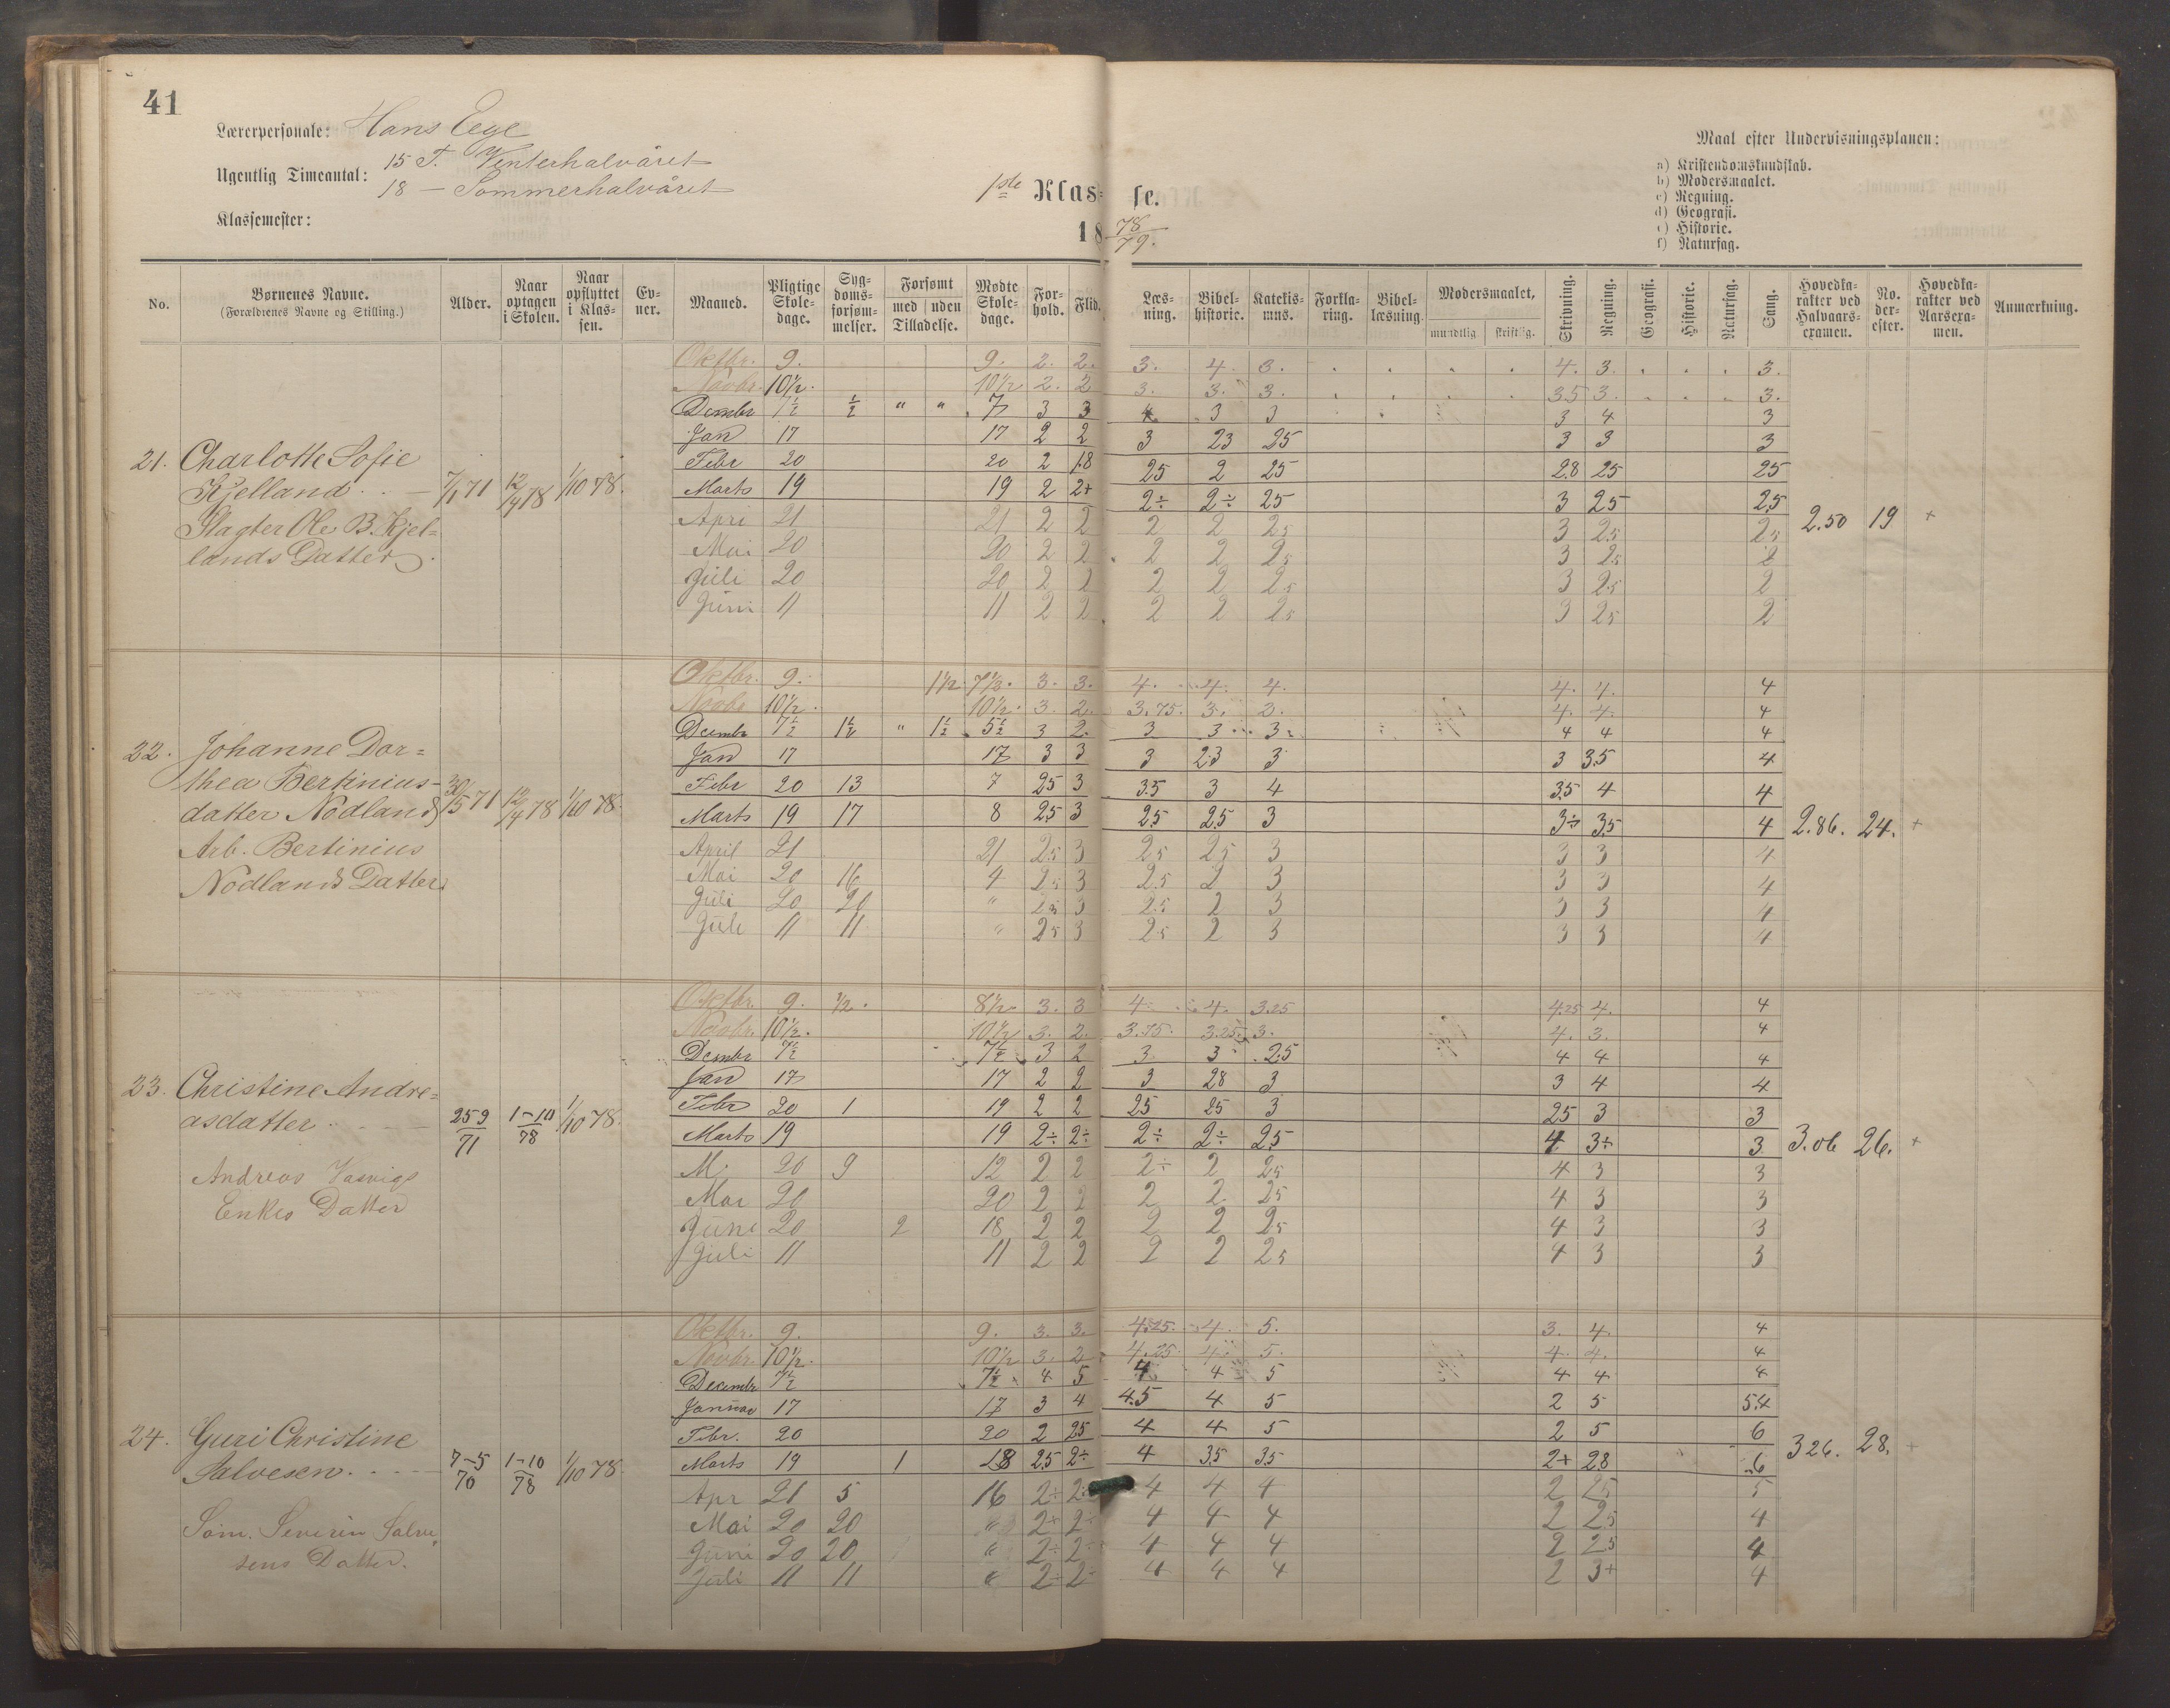 41
Lærerpersonale: Hans Eege
Ugentlig Timeantal: 15 T. Vinterhalvåret
18 — Sommerhalvåret
Klassemester:
1ste Klasse.
1878/79.
Maal efter Undervisningsplanen:
a) Kristendomskundskab.
b) Modersmaalet.
c) Regning.
d) Geografi.
e) Historie.
f) Naturfag.
No. | Børnenes Navne. (Forældrenes Navne og Stilling.) | Alder. | Naar optagen i Skolen. | Naar opflyttet i Klassen. | Evner. | Maaned. | Pligtige Skoledage. | Sygdomsforsømmelser. | Forsømt med / uden Tilladelse. | Mødte Skoledage. | Forhold. | Flid. | Læsning. | Bibelhistorie. | Katekismus. | Forklaring. | Bibellæsning. | Modersmaalet, mundtlig / skriftlig. | Skrivning. | Regning. | Geografi. | Historie. | Naturfag. | Sang. | Hovedkarakter ved Halvaarsexamen. | No. derefter. | Hovedkarakter ved Aarsexamen. | Anmærkning.
21. Charlotte Sofie
Kjelland
Slagter Ole B. Kjellands Datter
7/1 71 12/9 78 1/10 78.
Oktbr. 9. 9. 2. 2. 3. 4. 3. 4. 3. 3.
Novbr. 10½. 10½ 2. 2 3. 3. 3. 35 3. 3.
Dcembr 7½ ½ " " 7 3 3 4 3 3 3 4 3
Jan 17 17 2 2 3 23 25 3 3 3
Febr 20 20 2 1.8 25 2 25 28 25 25
Marts 19 19 2 2+ 2÷ 2÷ 25 3 25 25
Apri 21 21 2 2 2 2 25 3 25 25
Mai 20 20 2 2 2 2 25 3 25 2
Juli 20 20 2 2 2 2 25 3 25 2
Juni 11 11 2 2 2 2 25 3 25 2
2.50 19 +
22. Johanne Dorthea Bertiniusdatter Nodland
Arb. Bertinius
Nodlands Datter
30/5 71 12/9 78 1/10 78.
Oktbr. 9. 1½. 7½. 3. 3. 4. 4. 4. 4. 4. 4
Novbr 10½. 10½. 3. 2. 3.75. 3. 3. 4. 4. 4
Decembr 7½ 1½ " 1½ 5½ 3 2. 3 3 3 4 4 4
Jan 17 17 3 3 3 2.3 3 3 3.5 4
Febr 20 13 7 25 3 3.5 3 4 3.5 4 4
Marts 19 17 8 25 3 25 25 3 3÷ 35 4
April 21 21 25 3 25 25 3 3 3 4
Mai 20 16 4 25 3 25 2 3 3 3 4
Juli 20 20 " 25 3 25 2 3 3 3 4
Juli 11 11 " 25 3 25 2 3 3 3 4
2.86. 24. +
23. Christine Andreasdatter
Andreas
Enkes Datter
25 9/71 1-10/78 1/10 78.
Oktbr. 9. ½. 8½ 3. 3 4 4. 3.25 4.25 4. 4
Novbr. 10½. 10½ 3. 2. 3.75. 3.25. 3. 4. 3. 4
Dcembr 7½ 7½ 3 2 3 3 2.5 4 4 4
Jan 17 17 2 2 3 28 3 3 4 4
Febr 20 1 19 2 2 25 25 3 25 3 3
Marts 19 19 2÷ 2÷ 2÷ 2÷ 25 4 3÷ 3
20 9 12 2 2 2÷ 2 25 4 3 3
Mai 20 20 2 2 2 2 25 4 3 3
Juni 20 2 18 2 2 2 2 25 4 3 3
Juli 11 11 2 2 2 2 25 4 3 3
3.06 26. +
24. Guri Christine
Salvesen
Søm. Severin Salvesens Datter.
7-5/70 1-10/78 1/10 78
Oktbr. 9. 9. 3. 3. 4.25. 4. 5. 3. 4. 4
Novbr. 10½. 10½ 3. 2 4.25. 4. 5. 4. 4. 4
Decembr 7½ 7½ 4 5 4 4 5 4 4 4
Januar 17 17 3 4 4.5 4 5 2 5 5.4
Febr. 20 20 2 25 4 4 5 2 5 6
Marts 19 1 18 25 2÷ 4 35 35 2+ 28 6
Apr 21 5 16 2÷ 2÷ 4 4 4 2 25 5
Mai 20 20 " 2+ 2÷ 4 4 4 2 25 4
Juni 20 20 " 2÷ 2÷ 4 4 4 2 25 4
Juli 11 11 " 2÷ 2÷ 4 4 4 2 3+ 4
326. 28. +